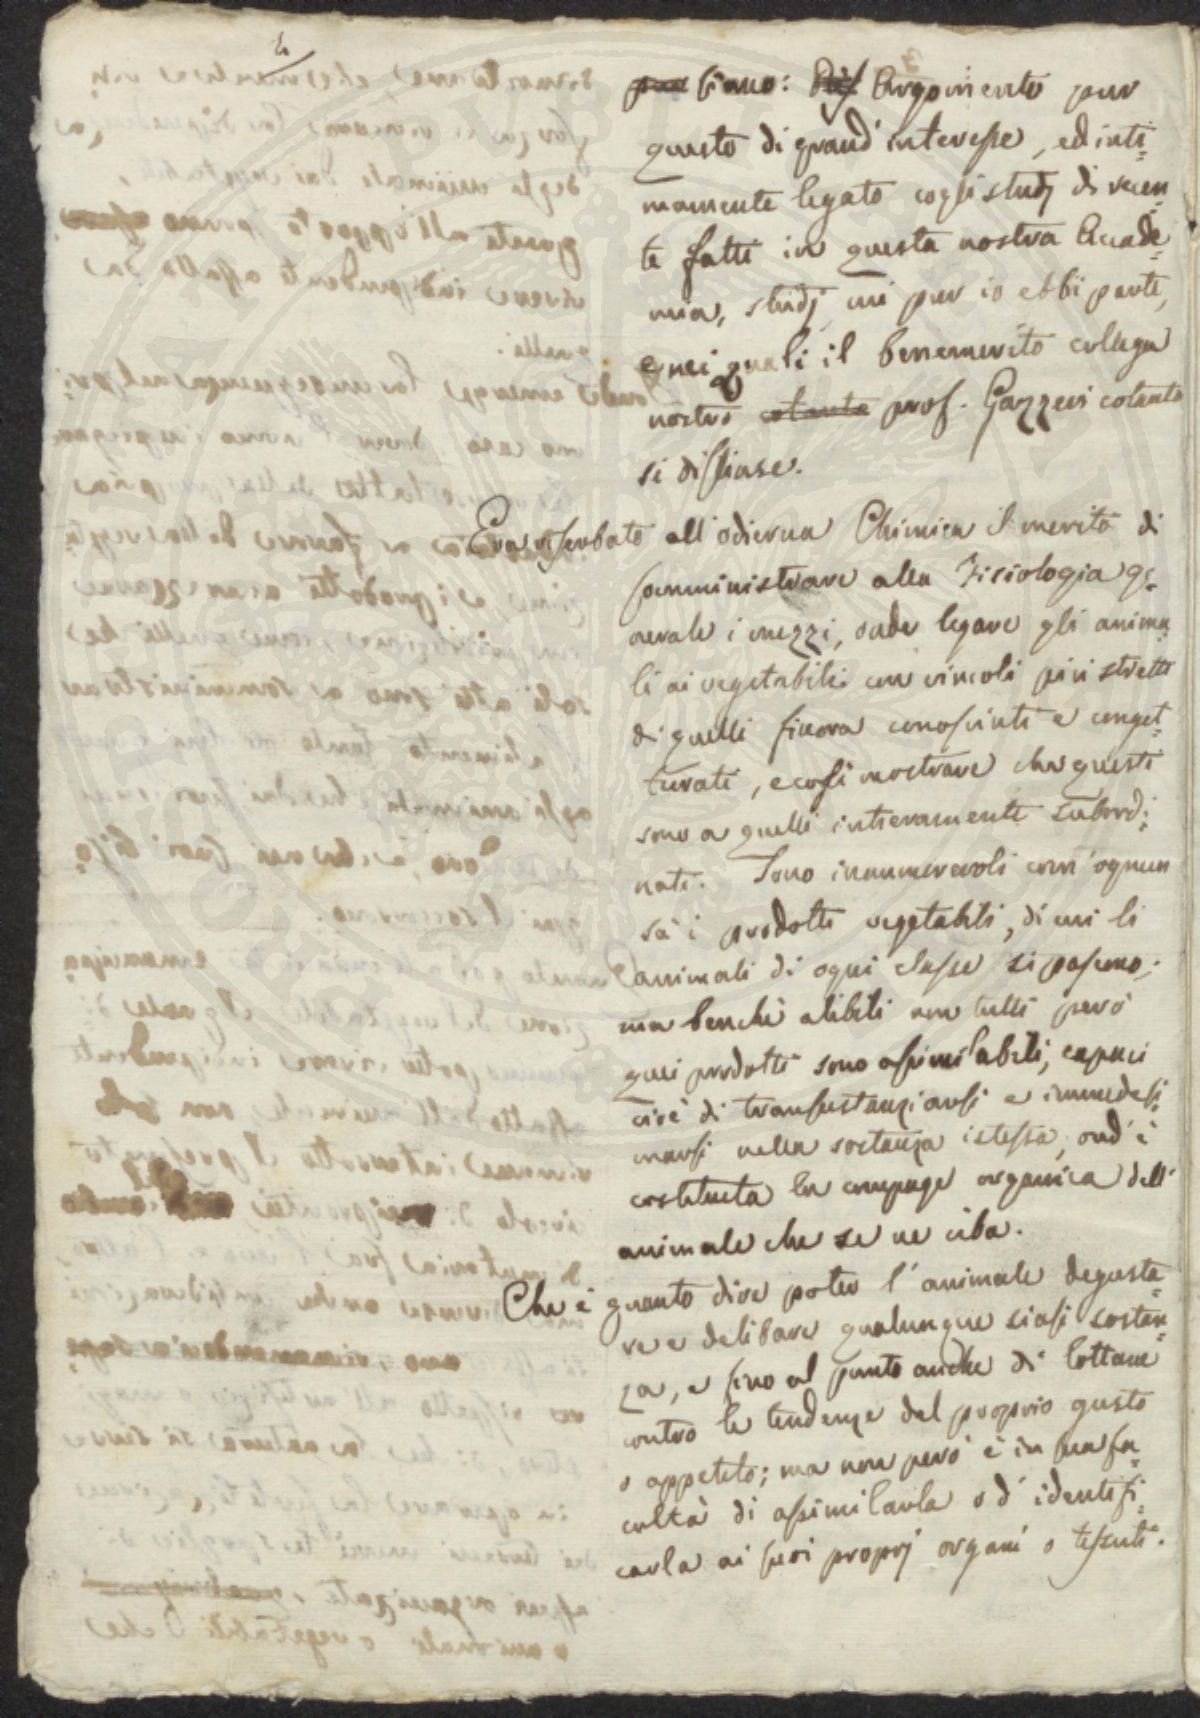 siano: Argomento pur
questo di grand'interesse, ed inti=
mamente legato cogli studj di recen=
te fatti in questa nostra Accade=
mia, studj, cui pur io ebbi parte,
e nei quali il benemerito collega
nostro cotanto prof. Gazzeri cotanto
si distinse.
Era riserbato all'odierna Chimica il merito di
somministrare alla Fisiologia ge=
nerale i mezzi, onde legare gli anima=
li ai vegetabili con vincoli più stretti
di quelli finora conosciuti e conget=
turati, e così mostrare che questi
sono a quelli intieramente subordi=
nati. Sono innumerevoli com'ognun
sà i prodotti vegetabili, di cui li
animali di ogni classe si pascono;
ma benchè alibili non tutti però
quei prodotti sono assimilabili, capaci
cioè di transustanziarsi e immedesi=
marsi nella sostanza istessa, ond'è
costituita la compage organica dell'
animale che se ne ciba.
Che è quanto dire poter l'animale degusta=
re e delibare qualunque siasi sostan=
za, e fino al punto anche di lottare
contro le tendenze del proprio gusto
o appetito; ma non però è in sua fa=
coltà di assimilarla o d'identifi=
carla ai suoi proprj organi o tessuti.